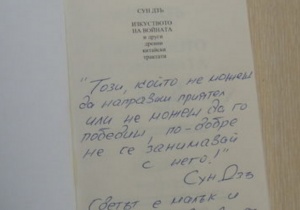 СУН ДЗЪ
ИЗКУСТВОТО
НА ВОЙНАТА
и други
древни
китайски
трактати
"Този, който не можеш
да направиш приятел,
или не можеш да го
победиш, по-добре
не се занимавай
с него!"
Сун Дзъ
Светът е малък и